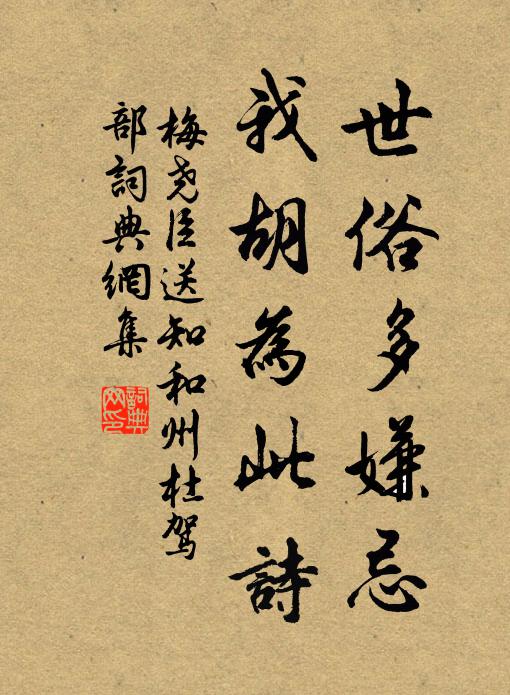 世俗多嫌忌
我胡為此詩
梅堯臣送知和州杜駕
部詞典網集
詞典
网印